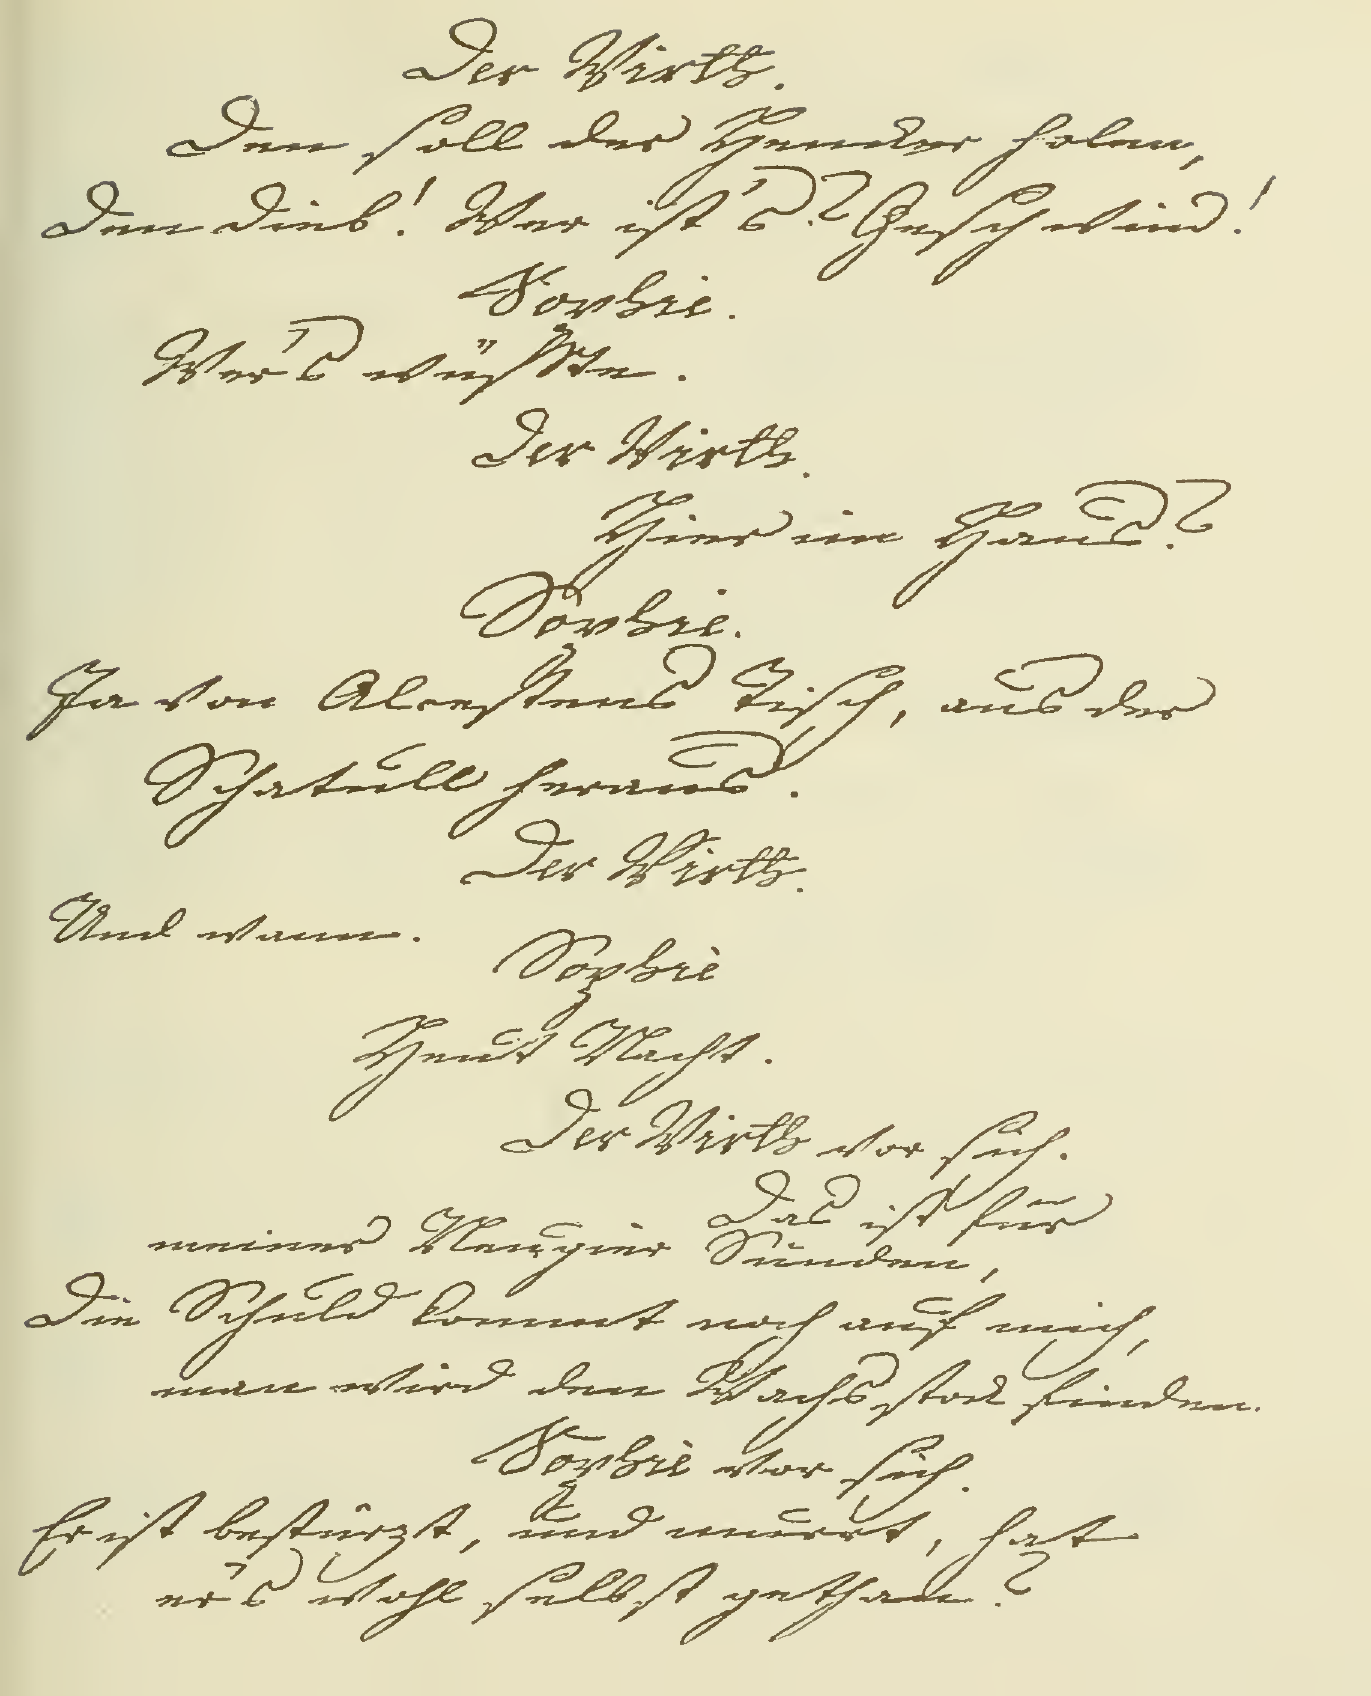 Der Wirth.
Den soll der Hencker holen,
Den Dieb! Wer ist's? Geschwind!
Sophie.
Wer's wüsste.
Der Wirth.
Hier im Haus?
Sophie.
Ja von Alcestens Tisch, aus der
Schatull heraus.
Der Wirth.
Und wann.
Sophie
Heut Nacht.
Der Wirth vor sich.
Das ist für
meiner Neugier Sünden,
Die Schuld kommt noch auf mich,
man wird den Wachsstock finden.
Sophie vor sich.
Er ist bestürzt, und murrt, hat
er's wohl selbst gethan?